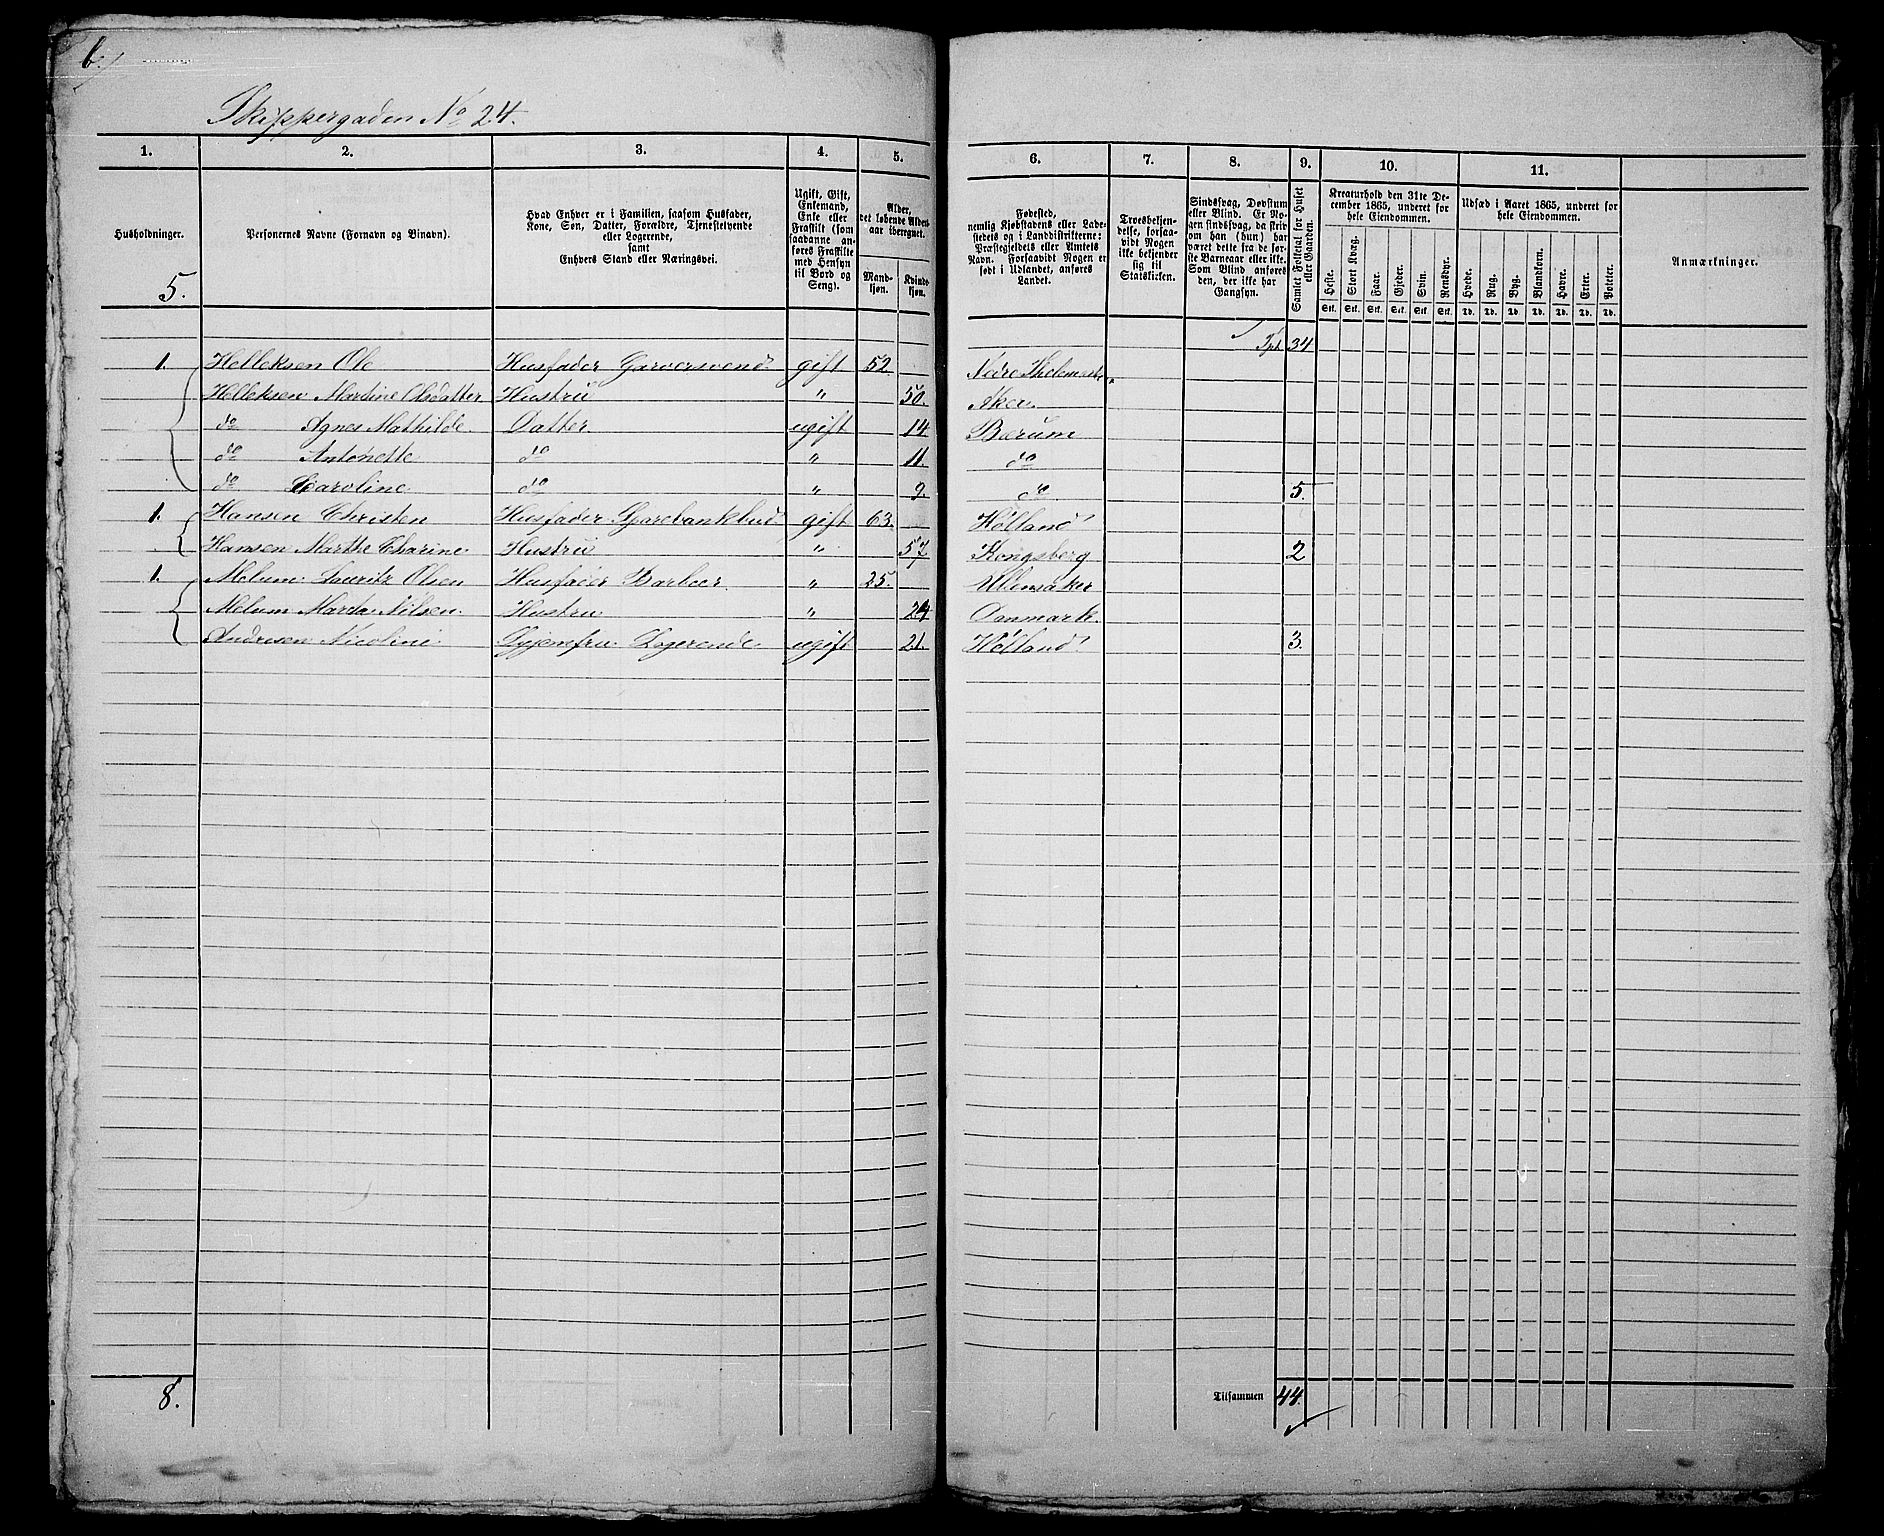 6.
Skippergaden No 24.
1. 2. 3. 4. 5. 6. 7. 8. 9. 10. 11.
Husholdninger.
Personernes Navne (Fornavn og Vinavn).
Hvad Enhver er i Familien, saasom Husfader,
Kone, Søn, Datter, Forældre, Tjenestetyende
eller Logerende,
samt
Enhvers Stand eller Næringsvei.
Ugift, Gift,
Enkemand,
Enke eller
Fraskilt (som
saadanne an-
føres Fraskilte
med Hensyn
til Bord og
Seng).
Alder,
det løbende Alders-
aar iberegnet.
Mand-
kjøn.
Kvind-
kjøn.
Fødested,
nemlig Kjøbstadens eller Lade-
stedets og i Landdistrikterne:
Præstegjeldets eller Amtets
Navn. Forsaavidt Nogen er
født i Udlandet, anføres
Landet.
Troesbekjen-
delse, forsaa-
vidt Nogen
ikke bekjender
sig til
Statskirken.
Sindssvag, Døvstum
eller Blind. Er No-
gen sindssvag, da skriv
om han (hun) har
været dette fra de før-
ste Barneaar eller ikke.
Som Blind anføres
den, der ikke har
Gangsyn.
Samlet Folketal for Huset
eller Gaarden.
Kreaturhold den 31te De-
cember 1865, underet for
hele Eiendommen.
Heste. Stort Kvæg. Faar. Gjeder. Svin. Rensdyr.
Stk. Stk. Stk. Stk. Stk. Stk.
Udsæd i Aaret 1865, underet for
hele Eiendommen.
Hvede. Rug. Byg. Blandkorn. Havre. Erter. Poteter.
Td. Td. Td. Td. Td. Td. Td.
Anmærkninger.
5.
Tpt 34
1. Helleksen Ole Husfader Garversvend gift 52. Nedre Thelemark.
Helleksen Martine Olsdatter Hustru " 50. Aker.
do Agnes Mathilde Datter ugift 14 Bærum
do Antonette do " 11. do
do Caroline do " 9. do 5.
1. Hansen Christen Husfader Sparebankbud gift 63. Høland
Hansen Marthe Charine Hustru " 57 Kongsberg 2
1. Melum Lauritz Olsen Husfader Barbeer " 25. Ullensaker
Melum Martha Nilsen. Hustru " 24 Danmark.
Andresen Nicoline Syjomfru Logerende ugift 21. Høland 3.
8.
Tilsammen 44.